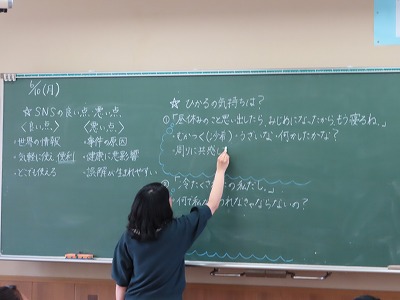 6/10(月)
☆SNSの良い点、悪い点
〈良い点〉 〈悪い点〉
・世界の情報 ・事件の原因
・気軽に使え 便利 ・健康に悪影響
・どこでも使える ・誤解が生まれやすい
☆ ひかるの気持ちは?
①「昼休みのこと思い出したら、みじめになったから、もう寝るね。」
・むかつく ・うざいな・何かしたかな?
・周りに共感し
「冷たくさ の私だし。」
何で私が われなきゃならないの?